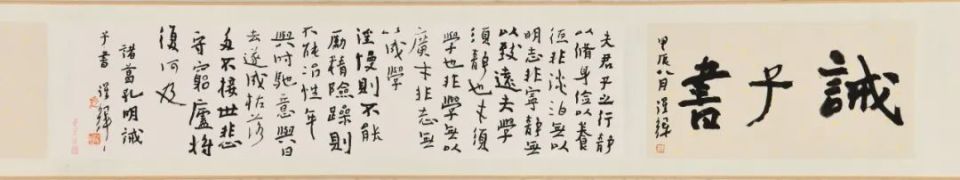 誡子書
甲辰八月
夫君子之行靜
以脩身儉以養
德非淡泊無以
明志非寧靜無
以致遠夫學
須靜也才須
學也非學無以
廣才非志無
以成學
淫慢則不能
勵精險躁則
不能治性年
與時馳意與日
去遂成枯落
多不接世悲
守窮廬將
復何及
諸葛孔明誡
子書